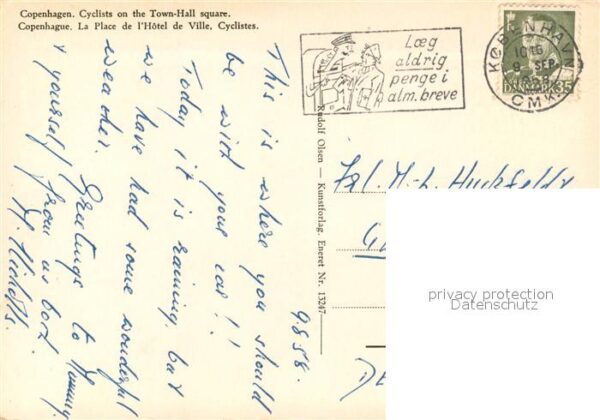 Copenhagen. Cyclists on the Town-Hall square.
Copenhague. La Place de l'Hôtel de Ville, Cyclistes.
Læg
aldrig
penge i
alm. breve
KØBENHAVN
SEP.
CMK.
DANMARK 35
Rudolf Olsen — Kunstforlag. Eneret Nr. 13247
9.8.58.
This is where you should
be with your car!!
Today it is raining, but
we have had some wonderful
weather.
Greetings to Mummy
& yourself from us both.
Frl.
privacy protection
Datenschutz